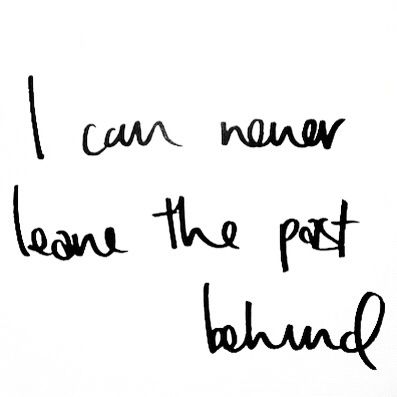 I can never
leave the past
behind